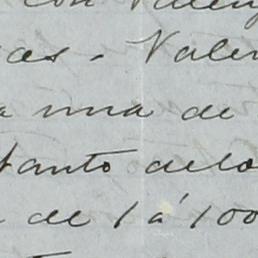 con Valen
cas - Valen
a una de
tanto delo
de 1 á 100